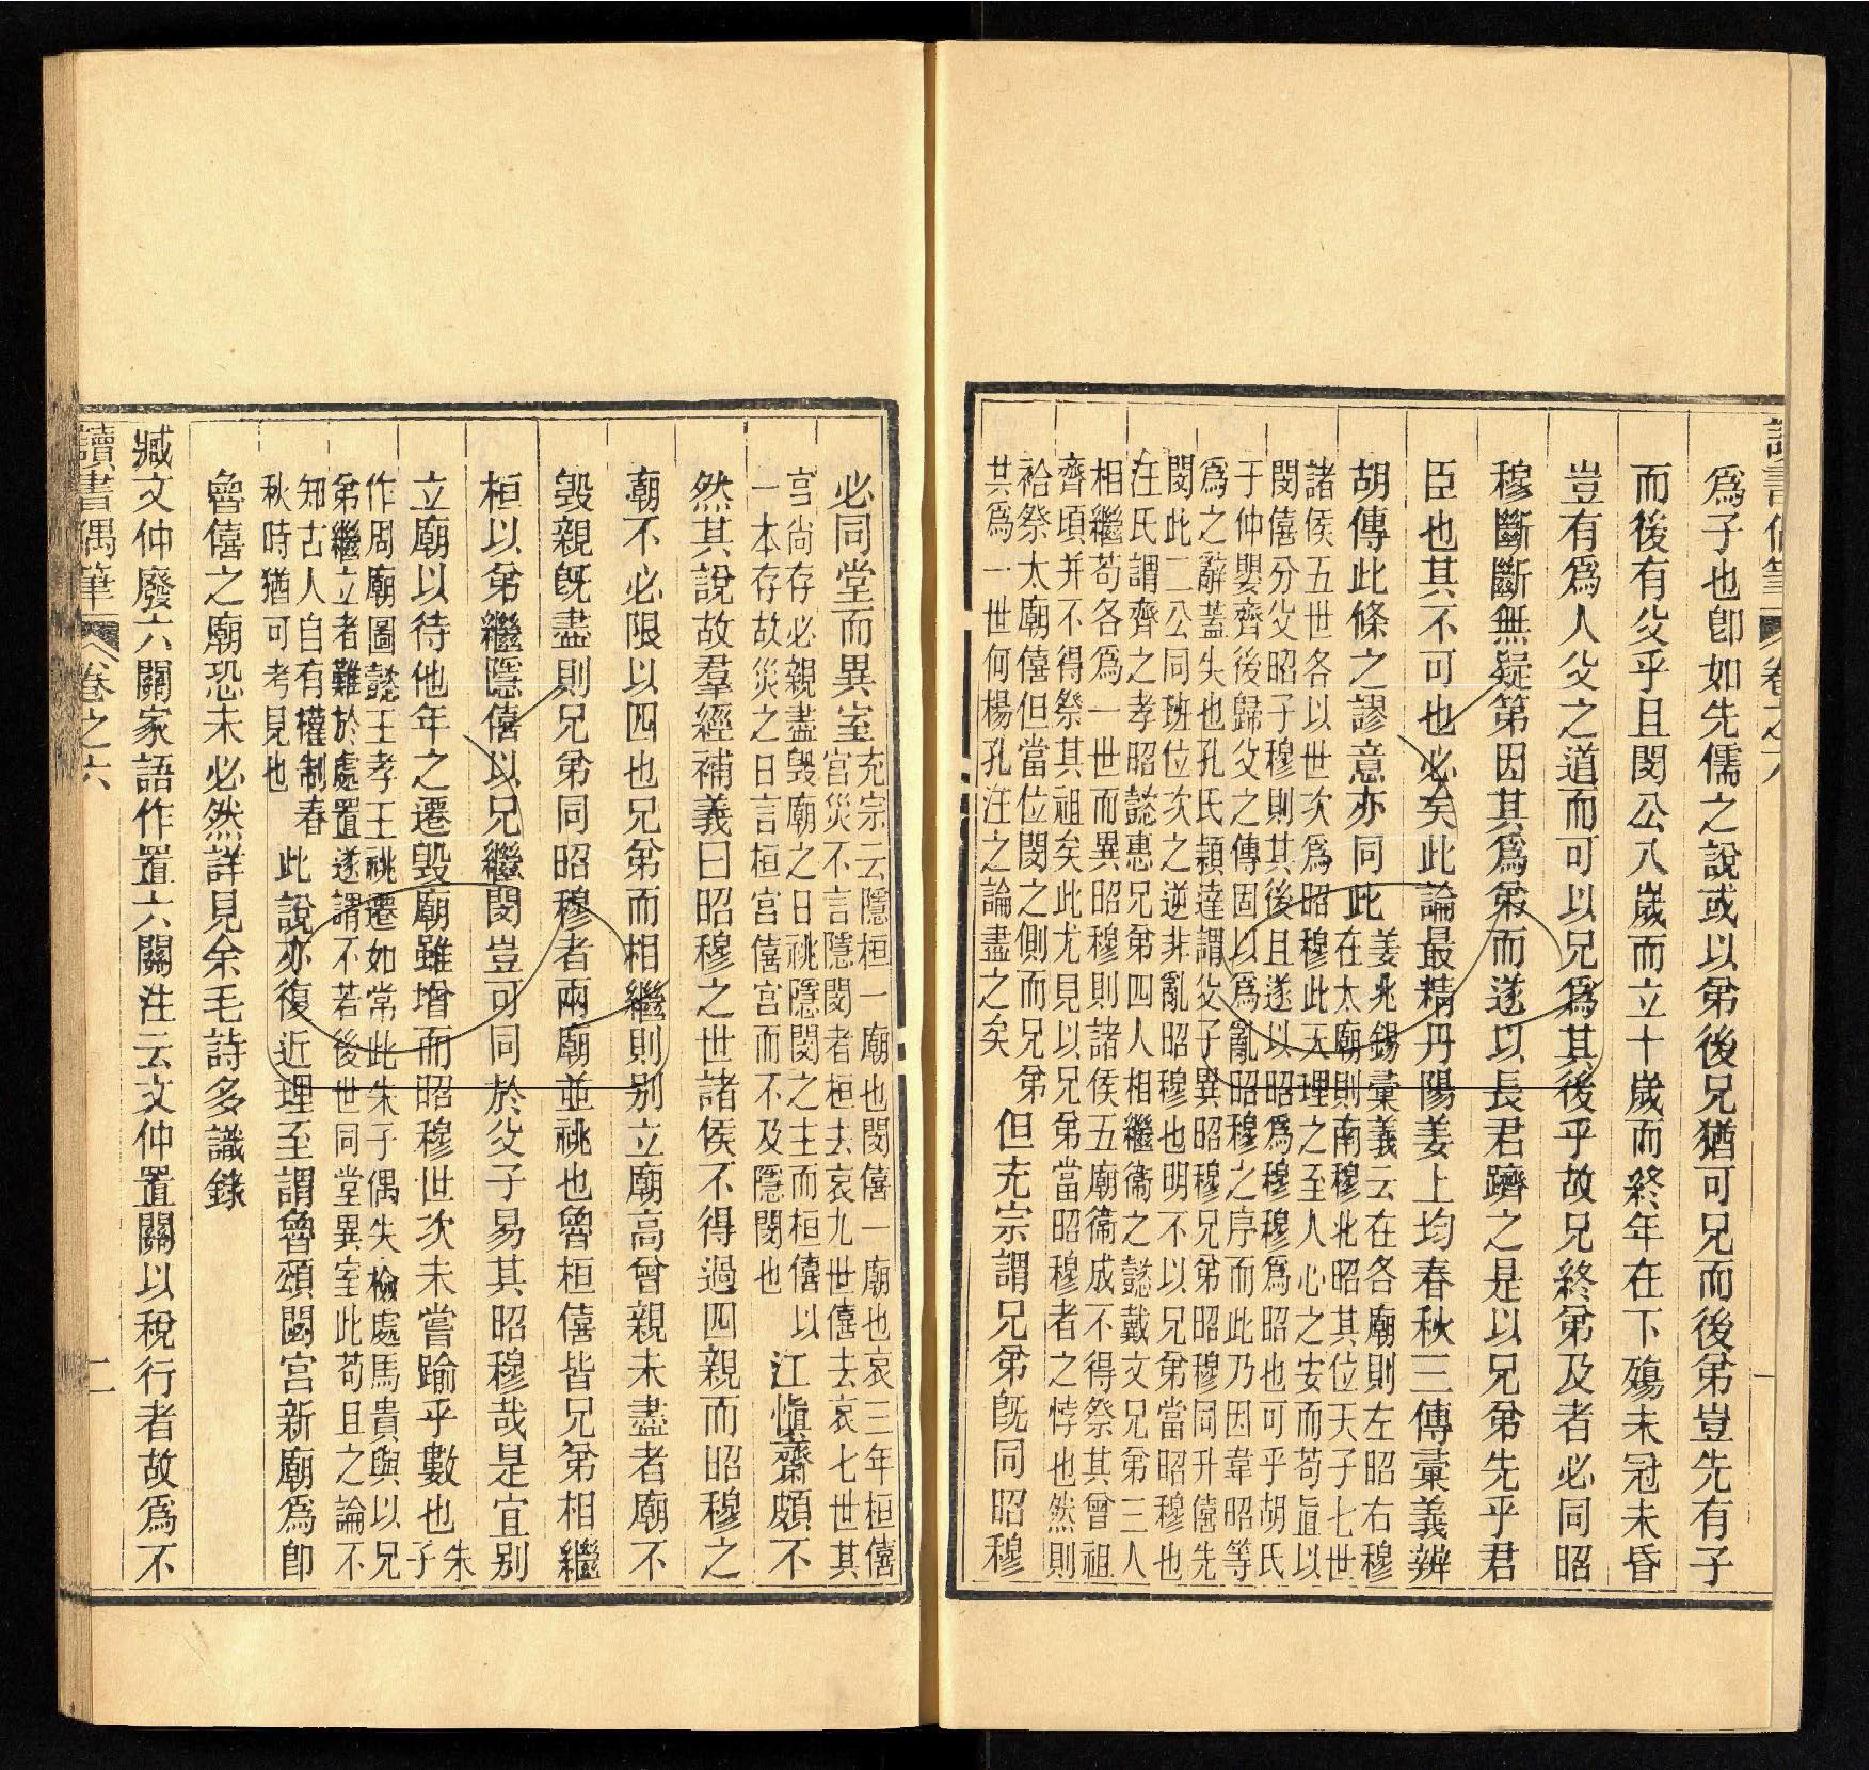 讀書偶筆
卷之六
一
爲子也卽如先儒之說或以弟後兄猶可兄而後弟豈先有子
而後有父乎且閔公八歲而立十歲而終年在下殤未冠未昏
豈有爲人父之道而可以兄爲其後乎故兄終弟及者必同昭
穆斷斷無疑第因其爲弟而遂以長君躋之是以兄弟先乎君
臣也其不可也必矣此論最精丹陽姜上均春秋三傳彙義辨
胡傳此條之謬意亦同此
姜兆錫彙義云在各廟則左昭右穆
在太廟則南穆北昭其位天子七世
諸侯五世各以世次爲昭穆此天理之至人心之安而苟眞以
閔僖分父昭子穆則其後且遂以昭爲穆穆爲昭也可乎胡氏
于仲嬰齊後歸父之傳固以爲亂昭穆之序而此乃因韋昭等
爲之辭蓋失也孔氏穎達謂父子異昭穆兄弟昭穆同升僖先
閔此二公同班位次之逆非亂昭穆也明不以兄弟當昭穆也
汪氏謂齊之孝昭懿惠兄弟四人相繼衞之懿戴文兄弟三人
相繼苟各爲一世而異昭穆則諸侯五廟衞成不得祭其曾祖
齊頃并不得祭其祖矣此尤見以兄弟當昭穆者之悖也然則
祫祭太廟僖但當位閔之側而兄弟
共爲一世何楊孔注之論盡之矣
但充宗謂兄弟旣同昭穆
必同堂而異室
充宗云隱桓一廟也閔僖一廟也哀三年桓僖
宮災不言隱閔者桓去哀九世僖去哀七世其
宮尚存必親盡毀廟之日祧隱閔之主而桓僖以
一本存故災之日言桓宮僖宮而不及隱閔也
江愼齋頗不
然其說故羣經補義曰昭穆之世諸侯不得過四親而昭穆之
廟不必限以四也兄弟而相繼則别立廟高曾親未盡者廟不
毀親旣盡則兄弟同昭穆者兩廟並祧也魯桓僖皆兄弟相繼
桓以弟繼隱僖以兄繼閔豈可同於父子易其昭穆哉是宜别
立廟以待他年之遷毀廟雖增而昭穆世次未嘗踰乎數也
朱
子
作周廟圖懿王孝王祧遷如常此朱子偶失檢處馬貴與以兄
弟繼立者難於處置遂謂不若後世同堂異室此苟且之論不
知古人自有權制春
秋時猶可考見也
此說亦復近理至謂魯頌閟宮新廟爲卽
魯僖之廟恐未必然詳見余毛詩多識錄
臧文仲廢六關家語作置六關注云文仲置關以稅行者故爲不
讀書偶筆
卷之六
二